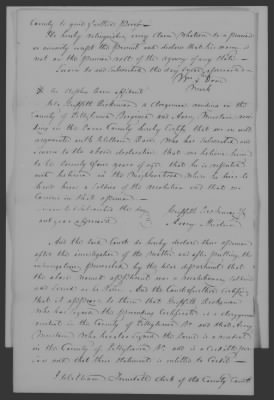 County to give further Proof.
He hereby relinquishes every claim whatever to a pension
or annuity except the present and declares that his name is
not on the pension roll of the agency of any state.
Sworn to and subscribed the day & year aforesaid
Wm Davis
mark
We Griffith Dickenson a clergyman residing in the
County of Pittsylvania Virginia and Avery Mustein resi-
ding in the same County hereby Certify that we are well
acquainted with William Davis who has subscribed and
sworn to the above declaration that we believe him
to be years of age that he is reputed
and believed in the Neighbourhood where he lives to
have been a Soldier of the revolution and that we
concur in that opinion.
Sworn & subscribed this day
and year aforesaid
Griffith Dickenson
Avery Mustein
And the said Court do hereby declare their opinion
after the investigation of the matter and after putting the
interrogatories prescribed by the War department that
the above named applicant was a revolutionary Soldier
and served as he states. And the Court further certifies
that it appears to them that Griffith Dickenson
who has signed the preceding Certificate is a clergyman
resident in the County of Pittsylvania Va and that Avery
Mustein who has also signed the same is a resident
in the County of Pittsylvania Va and is a credible per-
son and that their statement is entitled to Credit.
I William Tunstall clerk of the County Court